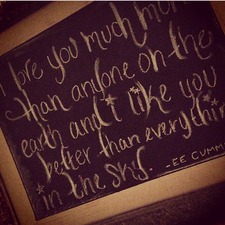 i love you much mor
than anyone on the
earth and i like you
better than everythin
in the sky.
-EE CUMM